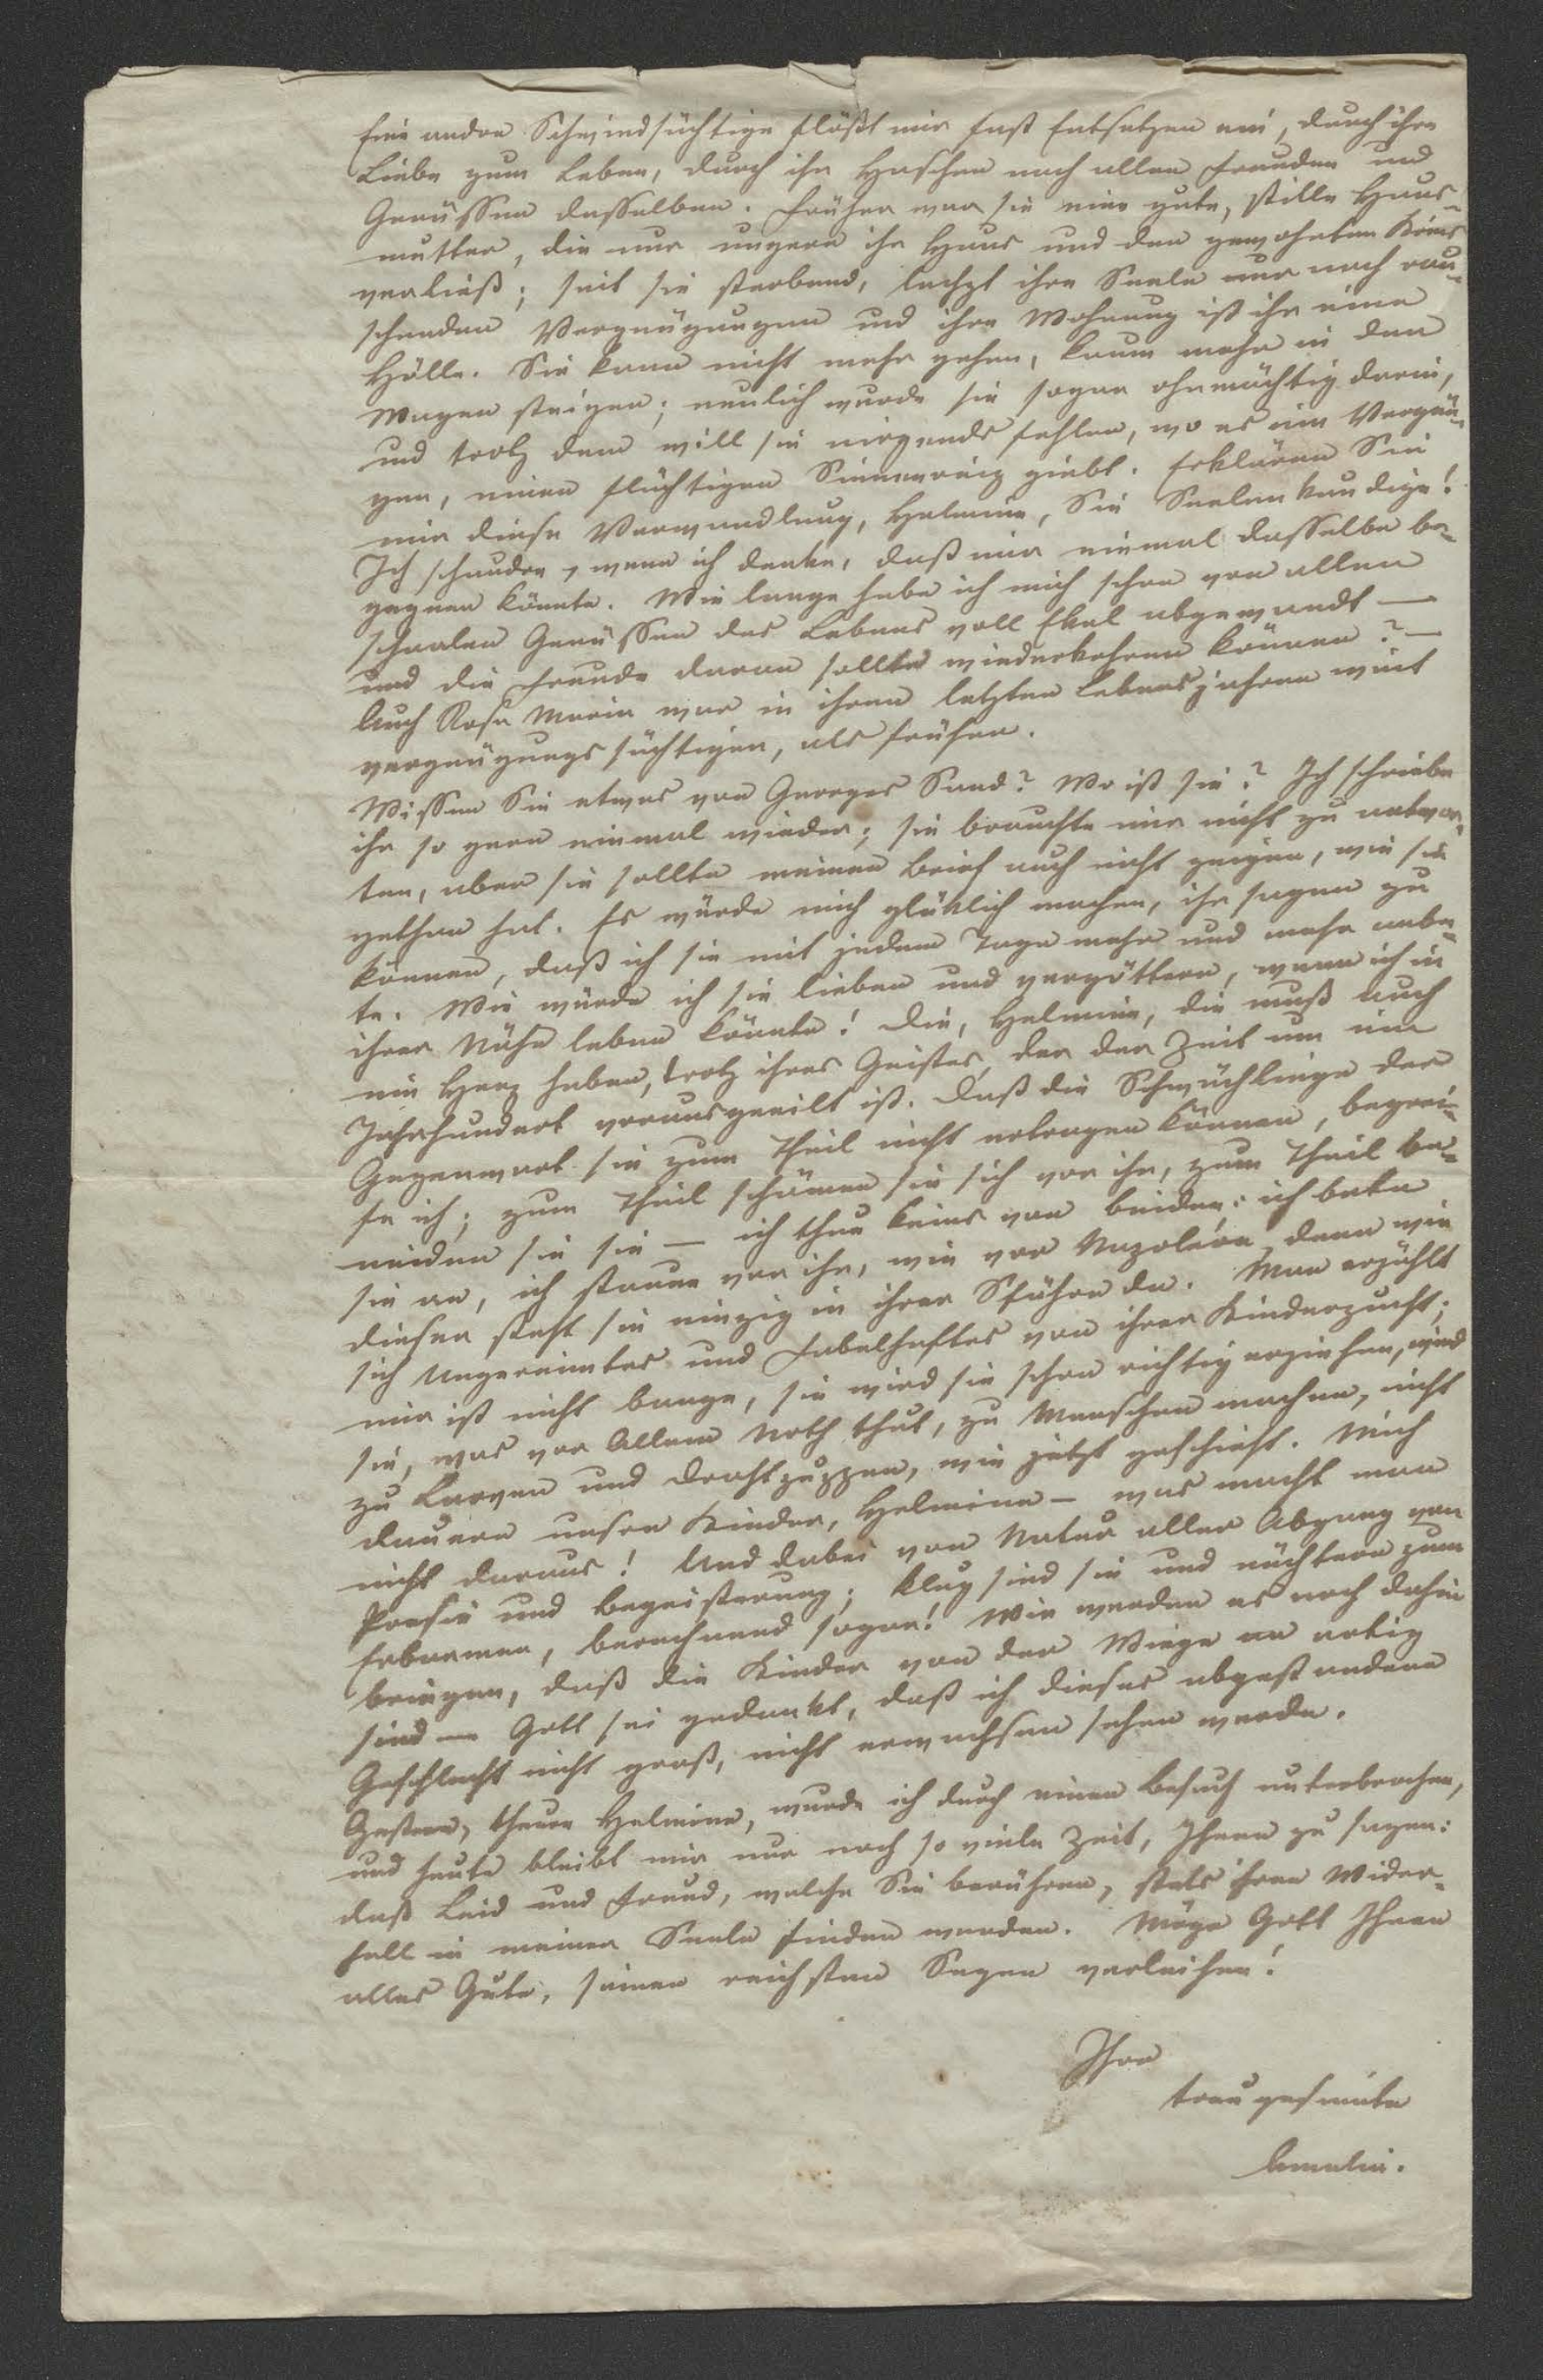 Eine andre Schwindsüchtige flößt mir fast Entsetzen ein, durch ihre
Liebe zum Leben, durch ihr Haschen nach allen Freuden und
Genüssen desselben. Früher war sie eine gute, stille Haus-
mutter, die nur ungern ihr Haus und den gewohnten Kreis
verließ; seit sie sterbend, lechzt ihre Seele nur nach rau-
schenden Vergnügungen und ihre Wohnung ist ihr eine
Hölle. Sie kann nicht mehr gehen, kaum mehr in den
Wagen steigen; neulich wurde sie sogar ohnmächtig darin,
und trotz dem will sie nirgends fehlen, wo es ein Vergnü-
gen, einen flüchtigen Sinnenreiz giebt. Erklären Sie
mir diese Verwandlung, Helmine, Sie Seelenkundige!
Ich schaudre, wenn ich denke, daß mir einmal dasselbe be-
gegnen könnte. Wie lange habe ich mich schon von allen
schaalen Genüssen des Lebens voll Ekel abgewandt —
und die Freude daran sollte wiederkehren können? —
Auch Rosa Maria war in ihren letzten Lebensjahren weit
vergnügungssüchtiger, als früher.
Wissen Sie etwas von Georges Sand? Wo ist sie? Ich schriebe
ihr so gern einmal wieder; sie brauchte mir nicht zu antwor-
ten, aber sie sollte meinen Brief auch nicht zeigen, wie sie
gethan hat. Es würde mich glüklich machen, ihr sagen zu
können, daß ich sie mit jedem Tage mehr und mehr anbe-
te. Wie würde ich sie lieben und vergöttern, wenn ich in
ihrer Nähe leben könnte! Die, Helmine, die muß auch
ein Herz haben, trotz ihres Geistes, der der Zeit um ein
Jahrhundert vorausgeeilt ist. Daß die Schwächlinge der
Gegenwart sie zum Theil nicht ertragen können, begrei-
fe ich; zum Theil schämen sie sich vor ihr, zum Theil be-
neiden sie sie — ich thue keins von beiden: ich bete
sie an, ich staune vor ihr, wie vor Napoleon, denn wie
dieser steht sie einzig in ihrer Sphäre da. Man erzählt
sich Ungereimtes und Fabelhaftes von ihrer Kinderzucht;
mir ist nicht bange, sie wird sie schon richtig erziehen, wird
sie, was vor Allem Noth thut, zu Menschen machen, nicht
zu Larven und Drahtpuppen, wie jetzt geschieht. Mich
dauern unsre Kinder, Helmina — was macht man
nicht daraus! Und dabei von Natur aller Abgang von
Poesie und Begeisterung; klug sind sie und nüchtern zum
Erbarmen, berechnend sogar! Wir werden es noch dahin
bringen, daß die Kinder von der Wiege an artig
sind — Gott sei gedankt, daß ich dieses abgestandene
Geschlecht nicht groß, nicht erwachsen sehen werde.
Gestern, theure Helmina, wurde ich durch einen Besuch unterbrochen,
und heute bleibt mir nur noch so viele Zeit, Ihnen zu sagen:
daß Leid und Freud, welche Sie berühren, stets ihren Wider-
hall in meiner Seele finden werden. Möge Gott Ihnen
alles Gute, seinen reichsten Segen verleihen!
Ihre
treugesinnte
Amalia.